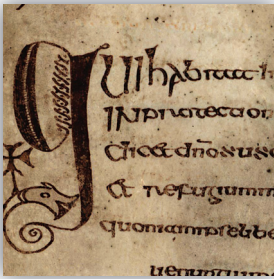 Qui habitat
IN protection
Dicet dño sus
et refugium m
quoniam ipse libe
uenantium